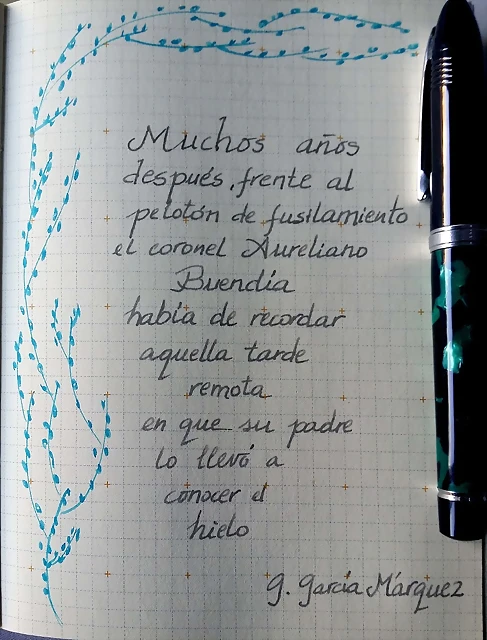 Muchos años
después, frente al
pelotón de fusilamiento
el coronel Aureliano
Buendía
había de recordar
aquella tarde
remota
en que su padre
lo llevó a
conocer el
hielo
G. García Márquez